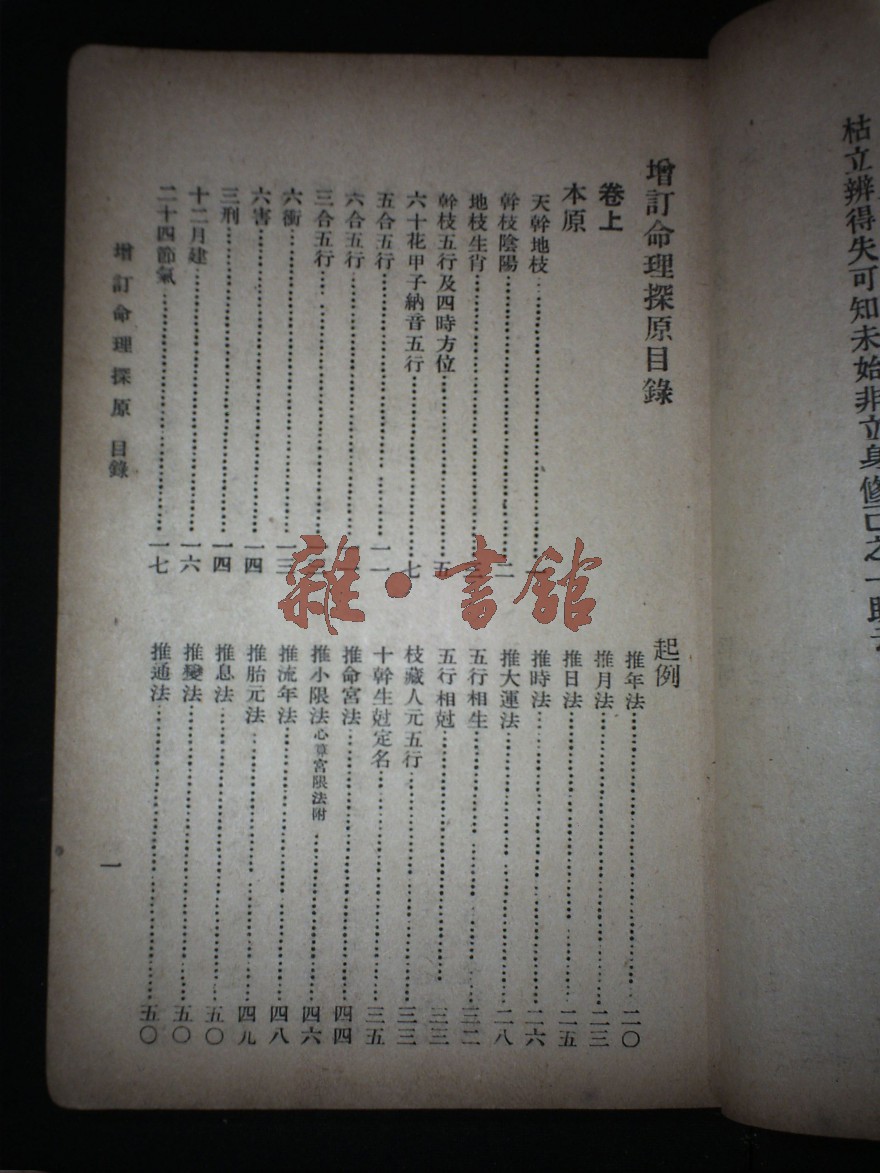 枯立辨得失可知未始非立身修己之一助
增訂命理探原目錄
卷上
本原
天幹地枝 一
幹枝陰陽 二
地枝生肖
幹枝五行及四時方位 五
六十花甲子納音五行 七
五合五行 一一
六合五行
三合五行
六衝 一三
六害 一四
三刑 一四
十二月建 一六
二十四節氣 一七
起例
推年法 二〇
推月法 二三
推日法 二五
推時法 二六
推大運法 二八
五行相生 三二
五行相尅 三三
枝藏人元五行 三三
十幹生尅定名 三五
推命宮法 四四
推小限法心算宮限法附 四六
推流年法 四八
推胎元法 四九
推息法 五〇
推變法 五〇
推通法 五〇
增訂命理探原 目錄
一
雜·書館